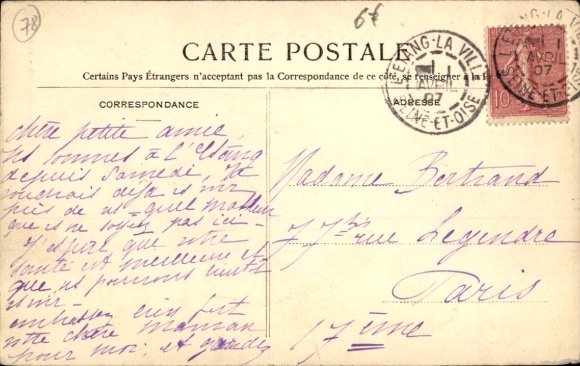 78
6€
CARTE POSTALE
Certains Pays Étrangers n'acceptant pas la Correspondance de ce côté, se renseigner à la
CORRESPONDANCE
ADRESSE
LA VILLE
AVRIL
07
SEINE-ET-OISE
LA VILLE
1
AVRIL
07
SEINE-ET-OISE
10
Chère petite amie,
ns sommes à l'Etang
depuis samedi, je
voudrais déjà vs voir
près de ns - quel malheur
que vs ne soyez pas ici -
J'espère que votre
santé est meilleure et
que ns pourrons bientôt
vs voir -
embrassez bien fort
votre chère maman
pour moi, et gardez
Madame Bertrand
77 bis rue Legendre
Paris
17ème